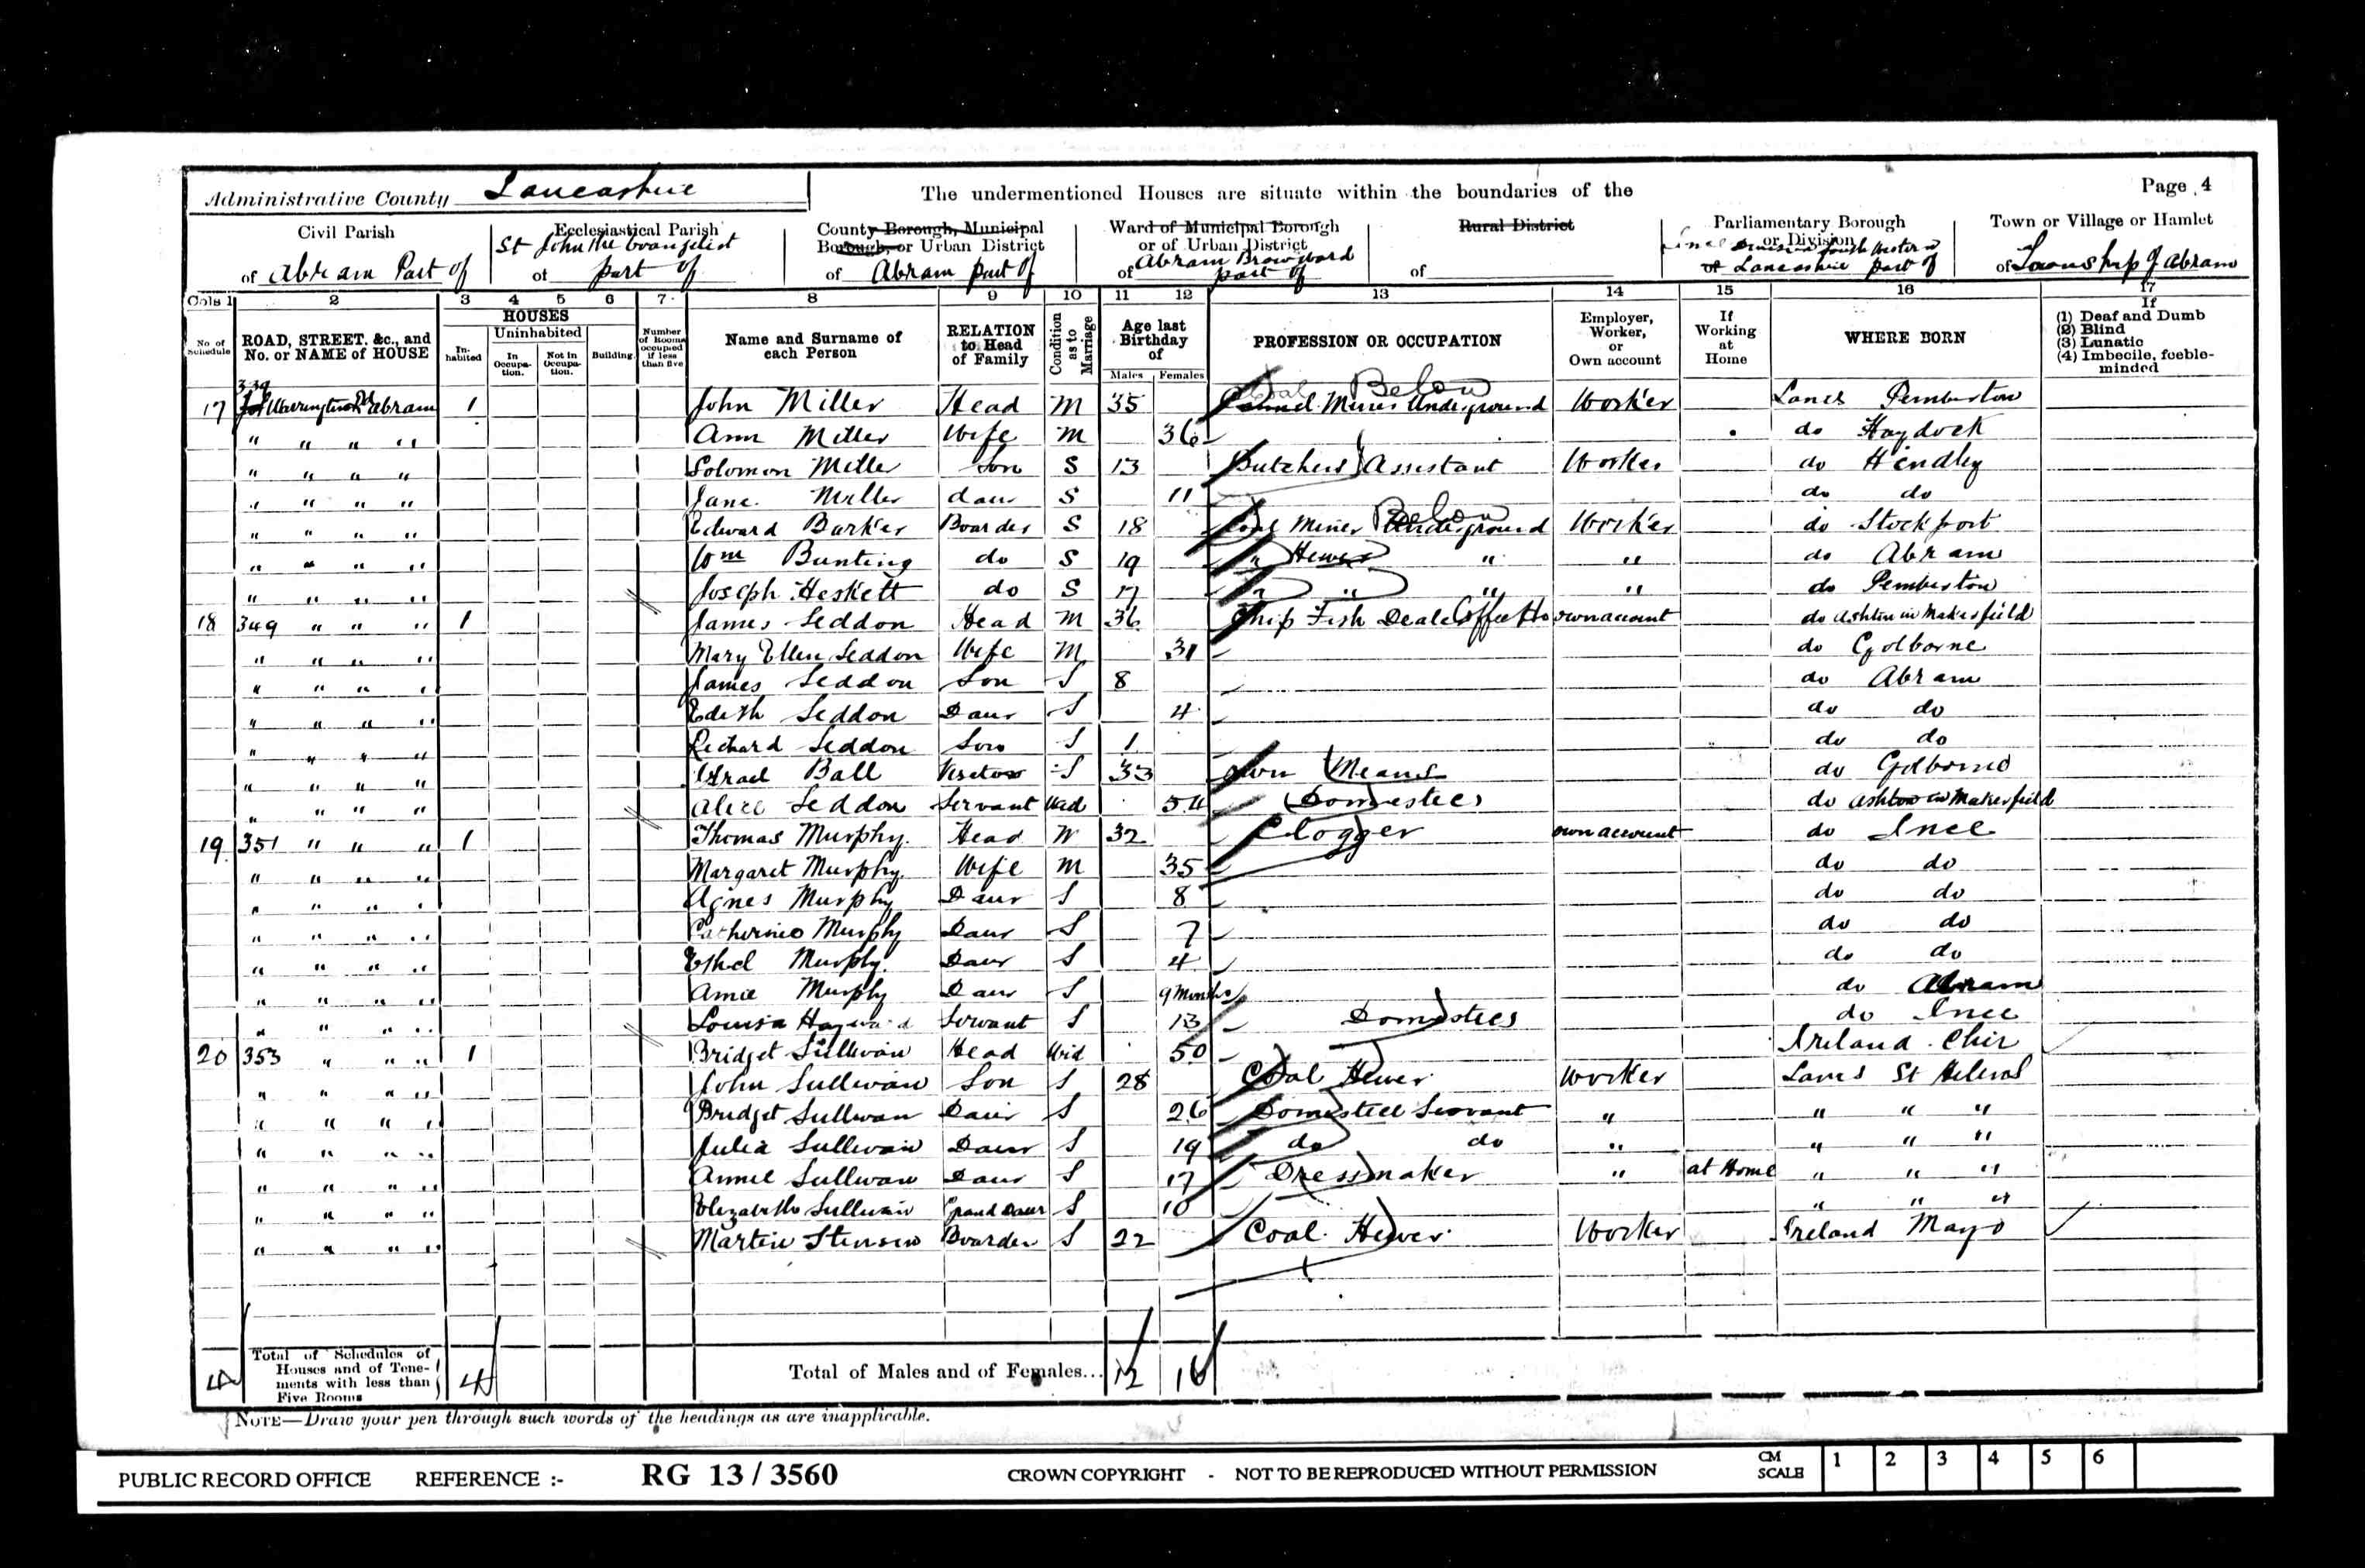 Administrative County Lancashire
The undermentioned Houses are situate within the boundaries of the
Page 4
Civil Parish of Abram Part of
Ecclesiastical Parish of St John the Evangelist part of
County Borough, Municipal Borough, or Urban District of Abram part of
Ward of Municipal Borough or of Urban District of Abram Brow ward part of
Rural District of
Parliamentary Borough or Division of Ince Division South Western Lancashire part of
Town or Village or Hamlet of Township of Abram
Cols 1 2 3 4 5 6 7 8 9 10 11 12 13 14 15 16 17
No. of Schedule
ROAD, STREET, &c., and No. or NAME of HOUSE
HOUSES
Inhabited
Uninhabited
In Occupation.
Not in Occupation.
Building.
Number of Rooms occupied if less than five
Name and Surname of each Person
RELATION to Head of Family
Condition as to Marriage
Age last Birthday of
Males Females
PROFESSION OR OCCUPATION
Employer, Worker, or Own account
If Working at Home
WHERE BORN
If (1) Deaf and Dumb (2) Blind (3) Lunatic (4) Imbecile, feeble-minded
17 339 Warrington Rd Abram 1 John Miller Head M 35 Coal Miner Underground Below Worker Lancs Pemberton
" " " " Ann Miller Wife M 36 do Haydock
" " " " Solomon Miller Son S 13 Butchers Assistant Worker do Hindley
" " " " Jane Miller daur S 11 do do
" " " " Edward Barker Boarder S 18 Coal Miner Underground Below Worker do Stockport
" " " " Wm Bunting do S 19 " Hewer " " do Abram
" " " " Joseph Heskett do S 17 " " " " do Pemberton
18 349 " " " 1 James Seddon Head M 36 Chip Fish Dealer Coffee Ho own account do Ashton in Makerfield
" " " " Mary Ellen Seddon Wife M 31 do Golborne
" " " " James Seddon Son S 8 do Abram
" " " " Edith Seddon Daur S 4 do do
" " " " Richard Seddon Son S 1 do do
" " " " Israel Ball Visitor S 33 own Means do Golborne
" " " " Alice Seddon Servant Wid 54 Domestics do Ashton in Makerfield
19 351 " " " 1 Thomas Murphy Head M 32 Clogger own account do Ince
" " " " Margaret Murphy Wife M 35 do do
" " " " Agnes Murphy Daur S 8 do do
" " " " Catherine Murphy Daur S 7 do do
" " " " Ethel Murphy Daur S 4 do do
" " " " Murphy Daur S 9 Months do Abram
" " " " Louisa Servant S 13 Domestics do Ince
20 353 " " " 1 Bridget Sullivan Head Wid 50 Ireland
" " " " John Sullivan Son S 28 Coal Hewer Worker Lancs St Helens
" " " " Bridget Sullivan Daur S 26 Domestic Servant " " " "
" " " " Julia Sullivan Daur S 19 do do " " " "
" " " " Annie Sullivan Daur S 17 Dressmaker " at Home " " "
" " " " Elizabeth Sullivan Grand Daur S 10 " " "
" " " " Martin Boarder S 22 Coal Hewer Worker Ireland Mayo
4 Total of Schedules of Houses and of Tenements with less than Five Rooms 4
Total of Males and of Females... 12 16
NOTE—Draw your pen through such words of the headings as are inapplicable.
PUBLIC RECORD OFFICE REFERENCE :- RG 13 / 3560 CROWN COPYRIGHT - NOT TO BE REPRODUCED WITHOUT PERMISSION CM SCALE 1 2 3 4 5 6